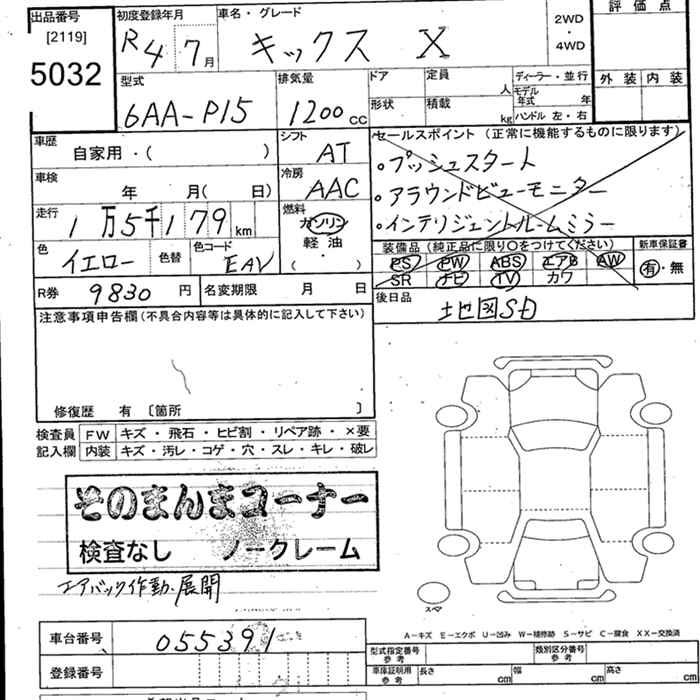 出品番号 [2119] 5032
初度登録年月 R4年7月
車名・グレード キックス X
2WD・4WD
評価点
外装 内装
型式 6AA-P15
排気量 1200 cc
ドア 形状
定員 人
積載 kg
ディーラー・並行
モデル年式 年
ハンドル 左・右
車歴 自家用・( )
シフト AT
車検 年 月( 日)
冷房 AAC
走行 1万5千179km
燃料 ガソリン
軽油
( ・ )
色 イエロー
色替
色コード EAV
セールスポイント (正常に機能するものに限ります)
・プッシュスタート
・アラウンドビューモニター
・インテリジェントルームミラー
装備品 (純正品に限り○をつけてください)
PS PW ABS エアB AW
SR ナビ TV カワ
新車保証書
有・無
R券 9830円
名変期限 月 日
後日品 地図SD
注意事項申告欄 (不具合内容等は具体的に記入して下さい)
修復歴 有 〔箇所 〕
検査員 FW キズ・飛石・ヒビ割・リペア跡・×要
記入欄 内装 キズ・汚レ・コゲ・穴・スレ・キレ・破レ
そのまんまコーナー
検査なし ノークレーム
エアバック作動・展開
スペア
A-キズ E-エクボ U-凹み W-補修跡 S-サビ C-腐食 XX-交換済
車台番号 055391
登録番号
型式指定番号 参考
類別区分番号 参考
車庫証明用 参考 長さ cm 幅 cm 高さ cm